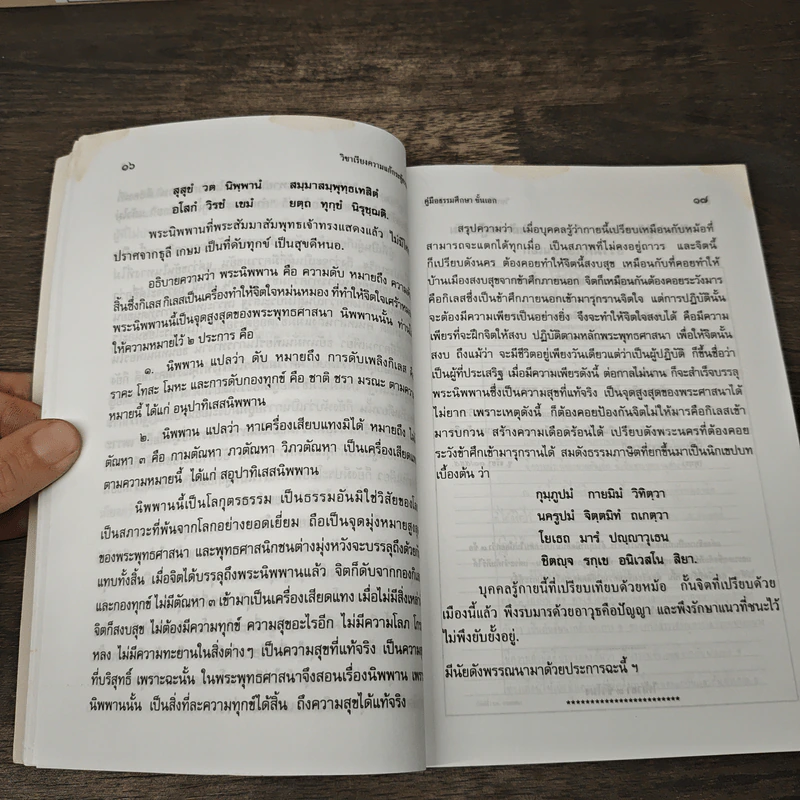 ๑๖
วิชาเรียงความแก้กระทู้
สุสุขํ วต นิพฺพานํ สมฺมาสมฺพุทฺธเทสิตํ
อโสกํ วิรชํ เขมํ ยตฺถ ทุกฺขํ นิรุชฺฌติ.
พระนิพพานที่พระสัมมาสัมพุทธเจ้าทรงแสดงแล้ว
ปราศจากธุลี เกษม เป็นที่ดับทุกข์ เป็นสุขดีหนอ.
อธิบายความว่า พระนิพพาน คือ ความดับ หมายถึง
สิ้นซึ่งกิเลส กิเลสเป็นเครื่องทำให้จิตใจหม่นหมอง ที่ทำให้จิตใจเศร้า
พระนิพพานนี้เป็นจุดสูงสุดของพระพุทธศาสนา นิพพานนั้น
ให้ความหมายไว้ ๒ ประการ คือ
๑. นิพพาน แปลว่า ดับ หมายถึง การดับเพลิงกิเลส
ราคะ โทสะ โมหะ และการดับกองทุกข์ คือ ชาติ ชรา มรณะ ตาม
หมายนี้ ได้แก่ อนุปาทิเสสนิพพาน
๒. นิพพาน แปลว่า หาเครื่องเสียบแทงมิได้ หมายถึง
ตัณหา ๓ คือ กามตัณหา ภวตัณหา วิภวตัณหา เป็นเครื่องเสียบแทง
ตามความหมายนี้ ได้แก่ สอุปาทิเสสนิพพาน
นิพพานนี้เป็นโลกุตรธรรม เป็นธรรมอันมิใช่วิสัยของ
เป็นสภาวะที่พ้นจากโลกอย่างยอดเยี่ยม ถือเป็นจุดมุ่งหมาย
ของพระพุทธศาสนา และพุทธศาสนิกชนต่างมุ่งหวังจะบรรลุถึงด้วย
แทบทั้งสิ้น เมื่อจิตได้บรรลุถึงพระนิพพานแล้ว จิตก็ดับจาก
และกองทุกข์ ไม่มีตัณหา ๓ เข้ามาเป็นเครื่องเสียดแทง เมื่อไม่มีสิ่งเหล่า
จิตก็สงบสุข ไม่ต้องมีความทุกข์ ความสุขอะไรอีก ไม่มีความโลภ
หลง ไม่มีความทะยานในสิ่งต่างๆ เป็นความสุขที่แท้จริง เป็นความ
ที่บริสุทธิ์ เพราะฉะนั้น ในพระพุทธศาสนาจึงสอนเรื่องนิพพาน
นิพพานนั้น เป็นสิ่งที่ละความทุกข์ได้สิ้น ถึงความสุขได้แท้จริง
คู่มือธรรมศึกษา ชั้นเอก
๑๗
สรุปความว่า เมื่อบุคคลรู้ว่ากายนี้เปรียบเหมือนกับหม้อที่
สามารถจะแตกได้ทุกเมื่อ เป็นสภาพที่ไม่คงอยู่ถาวร และจิตนี้
ก็เปรียบดังนคร ต้องคอยทำให้จิตนี้สงบสุข เหมือนกับที่คอยทำให้
บ้านเมืองสงบสุขจากข้าศึกภายนอก จิตก็เหมือนกันต้องคอยระวังมาร
คือกิเลสซึ่งเป็นข้าศึกภายนอกเข้ามารุกรานจิตใจ แต่การปฏิบัตินั้น
จะต้องมีความเพียรเป็นอย่างยิ่ง จึงจะทำให้จิตใจสงบได้ คือมีความ
เพียรที่จะฝึกจิตให้สงบ ปฏิบัติตามหลักพระพุทธศาสนา เพื่อให้จิตนั้น
สงบ ถึงแม้ว่า จะมีชีวิตอยู่เพียงวันเดียวแต่ว่าเป็นผู้ปฏิบัติ ก็ขึ้นชื่อว่า
เป็นผู้ที่ประเสริฐ เมื่อมีความเพียรดังนี้ ต่อกาลไม่นาน ก็จะสำเร็จบรรลุ
พระนิพพานซึ่งเป็นความสุขที่แท้จริง เป็นจุดสูงสุดของพระศาสนาได้
ไม่ยาก เพราะเหตุดังนี้ ก็ต้องคอยป้องกันจิตไม่ให้มารคือกิเลสเข้า
มารบกวน สร้างความเดือดร้อนได้ เปรียบดังพระนครที่ต้องคอย
ระวังข้าศึกเข้ามารุกรานได้ สมดังธรรมภาษิตที่ยกขึ้นมาเป็นนิกเขปบท
เบื้องต้น ว่า
กุมฺภูปมํ กายมิมํ วิทิตฺวา
นครูปมํ จิตฺตมิทํ ถเกตฺวา
โยเธถ มารํ ปญฺญาวุเธน
ชิตญฺจ รกฺเข อนิเวสโน สิยา.
บุคคลรู้กายนี้ที่เปรียบเทียบด้วยหม้อ กั้นจิตที่เปรียบด้วย
เมืองนี้แล้ว พึงรบมารด้วยอาวุธคือปัญญา และพึงรักษาแนวที่ชนะไว้
ไม่พึงยับยั้งอยู่.
มีนัยดังพรรณนามาด้วยประการฉะนี้ ฯ
************************